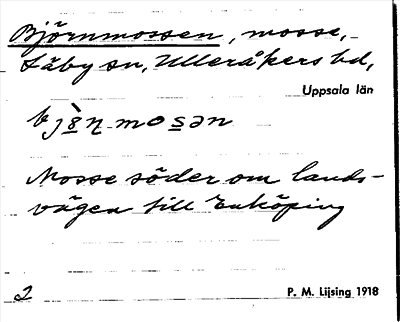 Björnmossen, mosse,
Läby sn, Ulleråkers hd,
Uppsala län
bjö̀n mosən
Mosse söder om lands-
vägen till Enköping
2
P. M. Lijsing 1918